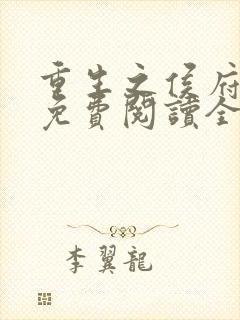 重生之侯府
免費閱讀全
李翼龍